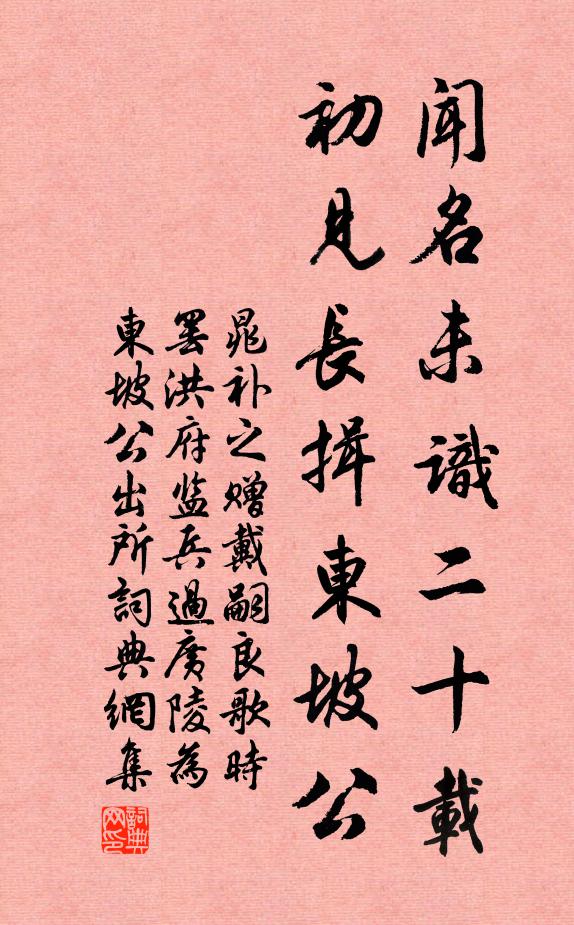 闻名未識二十載
初見長揖東坡公
晁补之赠戴嗣良歌時
罢洪府监兵過廣陵為
東坡公出所詞典網集
詞典网印